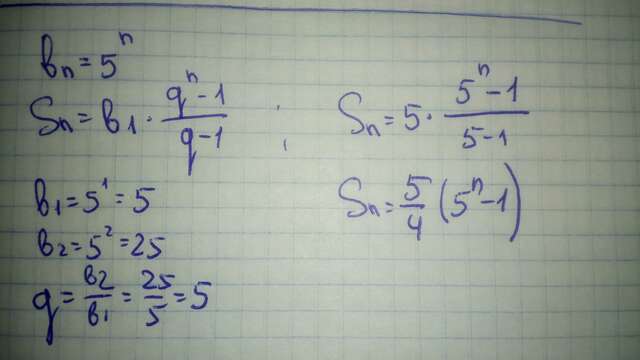 bₙ = 5ⁿ
Sₙ = b₁ · (qⁿ - 1)/(q - 1) ;
b₁ = 5¹ = 5
b₂ = 5² = 25
q = b₂/b₁ = 25/5 = 5
Sₙ = 5 · (5ⁿ - 1)/(5 - 1)
Sₙ = 5/4 (5ⁿ - 1)